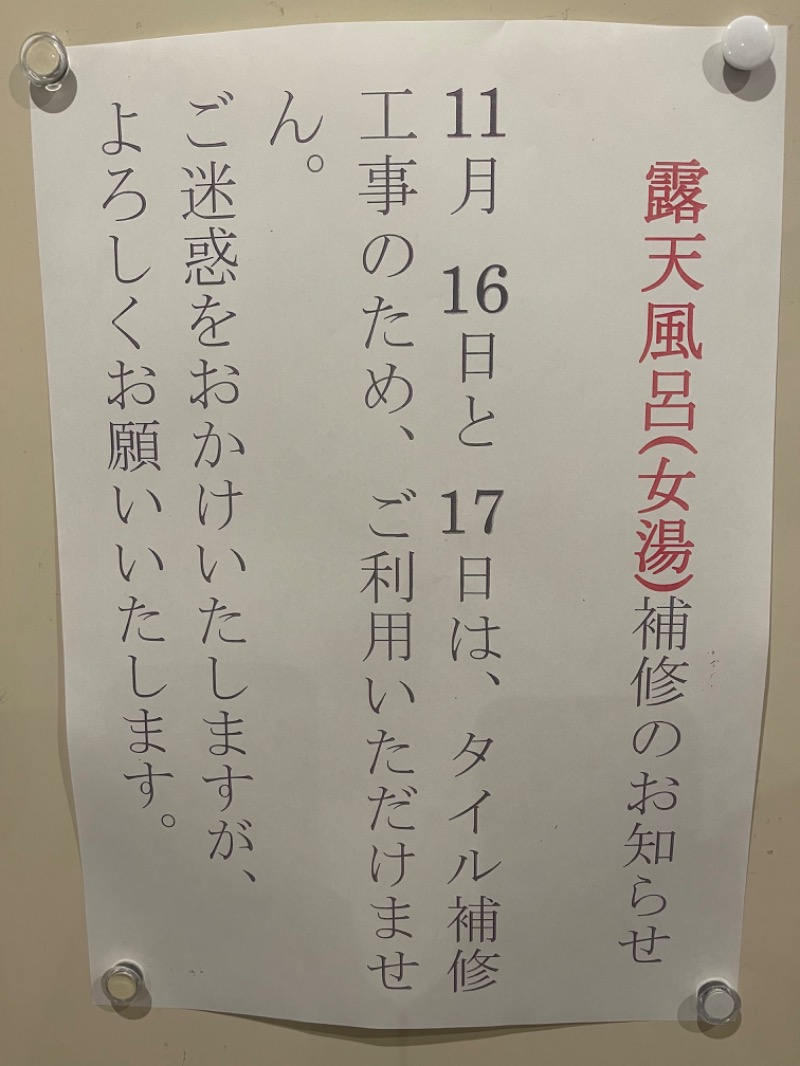 露天風呂(女湯)補修のお知らせ
11月 16日と 17日は、タイル補修
工事のため、ご利用いただけませ
ん。
ご迷惑をおかけいたしますが、
よろしくお願いいたします。